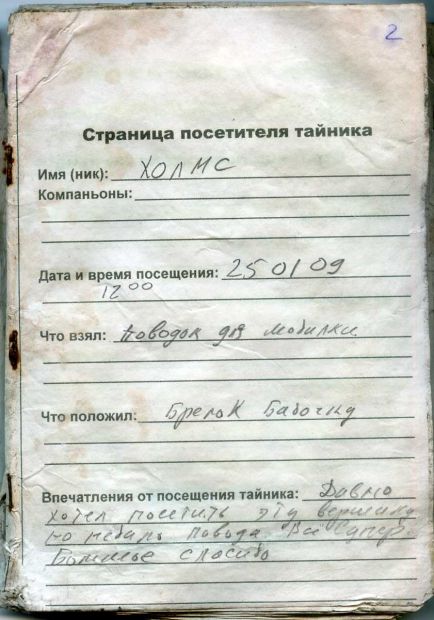 2
Страница посетителя тайника
Имя (ник): ХОЛМС
Компаньоны:
Дата и время посещения: 25 01 09
12 00
Что взял: поводок для мобилки
Что положил: Брелок Бабочку
Впечатления от посещения тайника: Давно
хотел посетить эту вершину
но небыло повода. Всё супер.
Большое спасибо